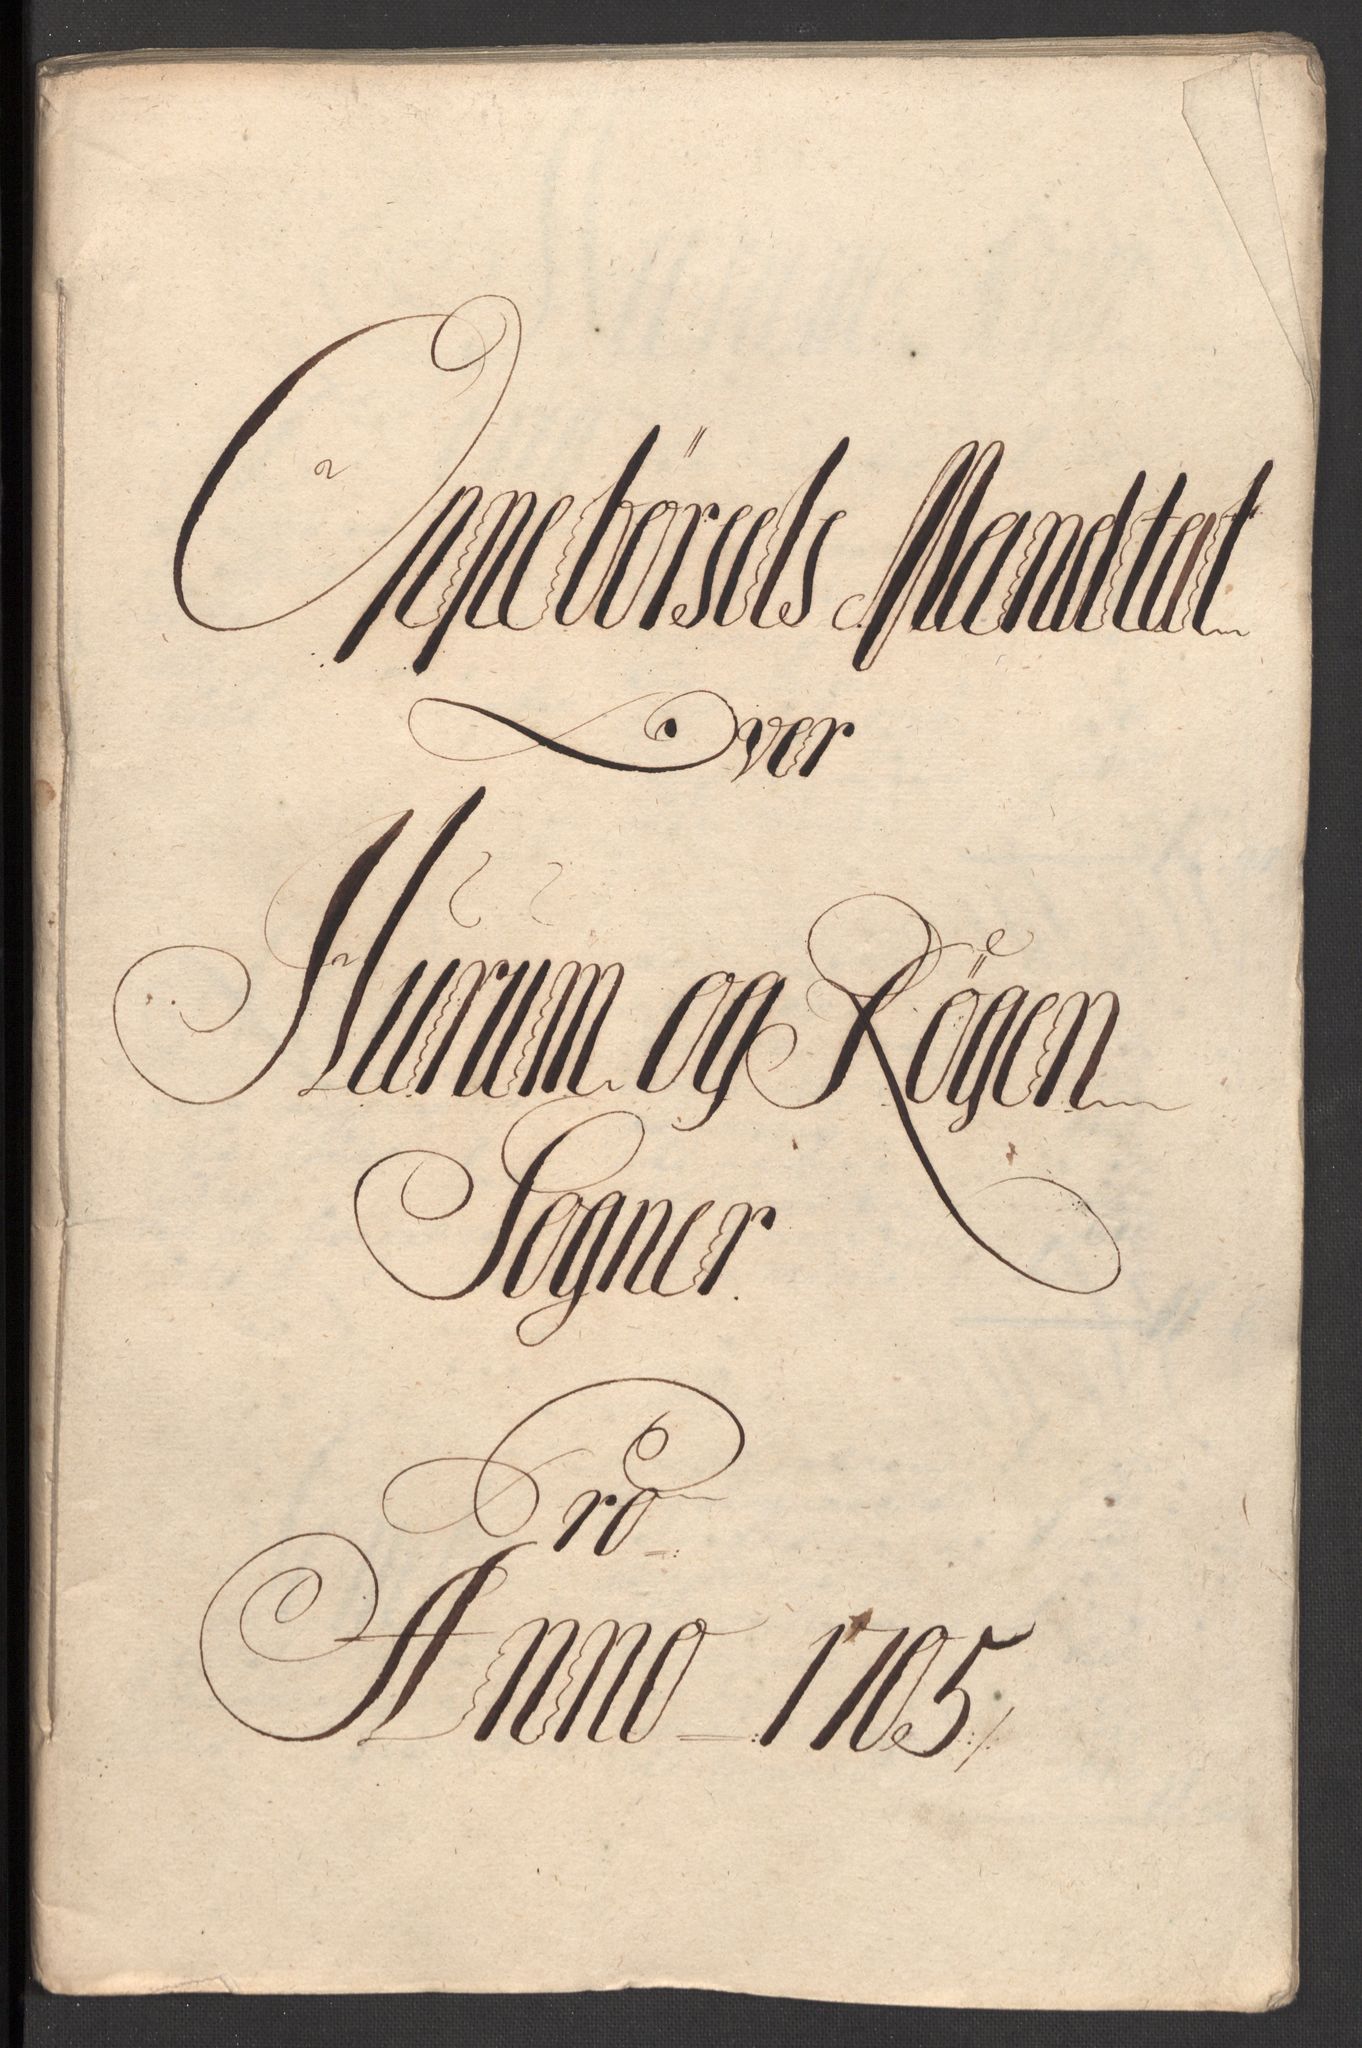 Oppebörsels Mandtal
Over
Hurum og Rögen
Sogner
Pro
Anno 1705